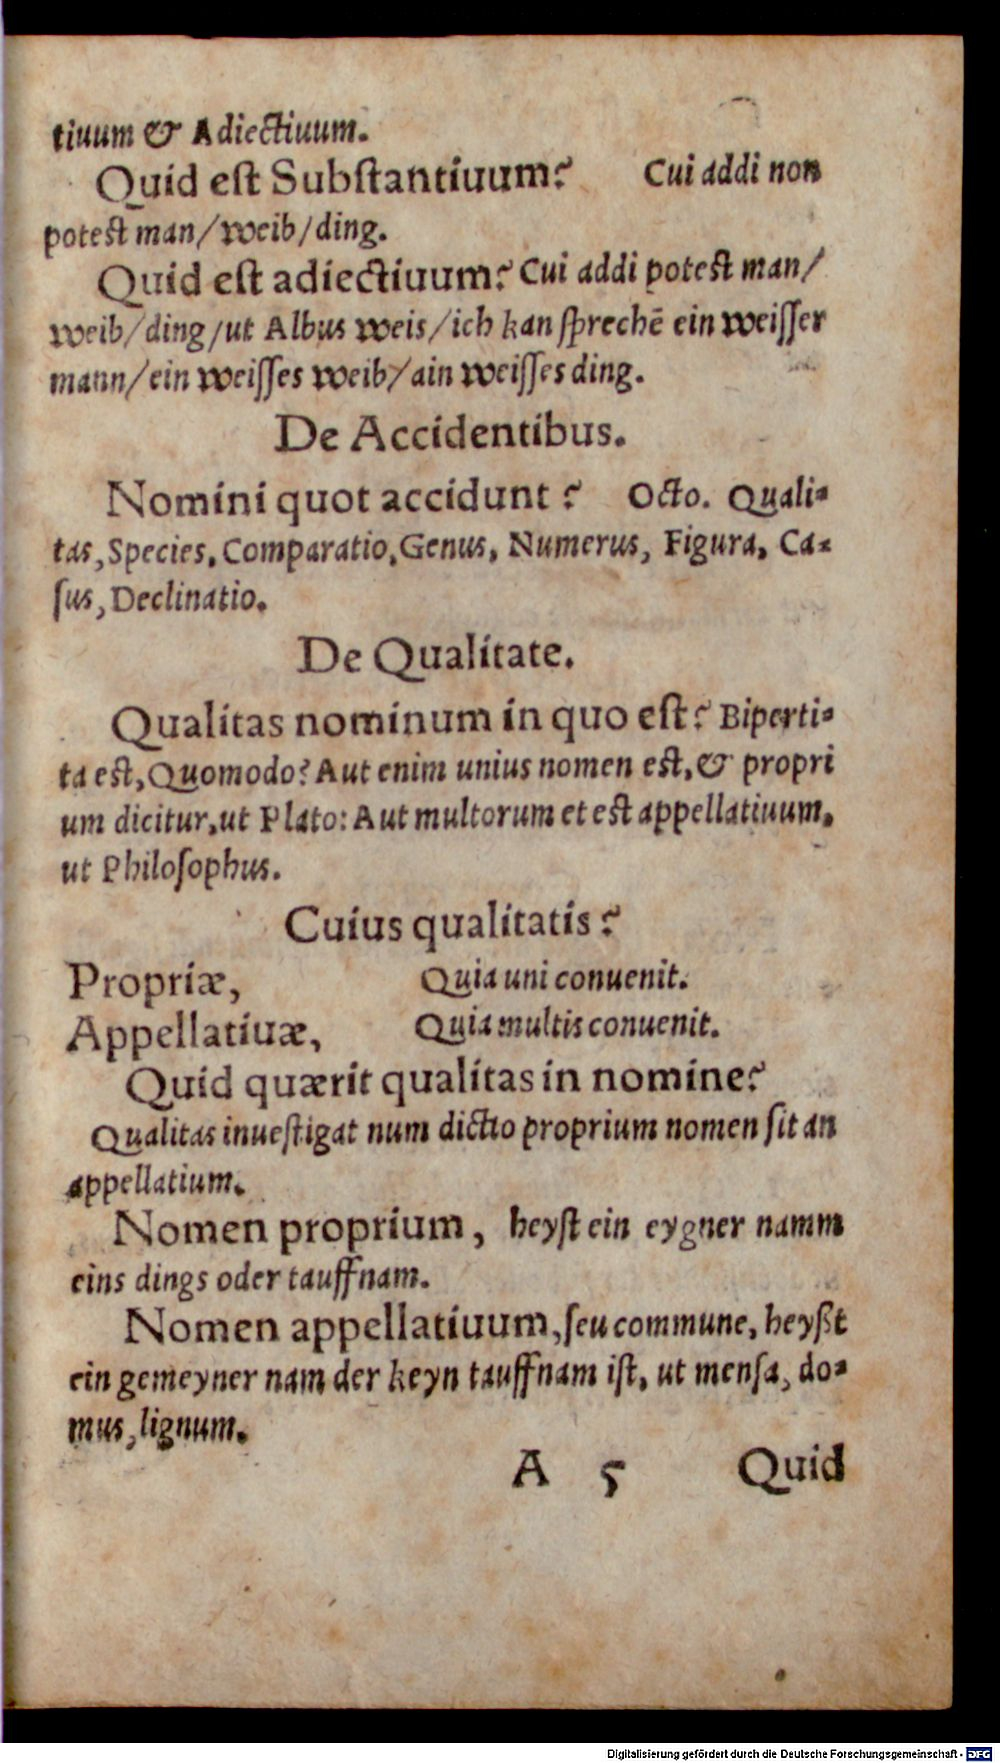 tiuum & Adiectiuum.
Quid eſt Subſtantiuum? Cui addi non
poteſt man/weib/ding.
Quid eſt adiectiuum? Cui addi poteſt man/
weib/ding/ut Albus weis/ich kan ſprechē ein weiſſer
mann/ein weiſſes weib/ain weiſſes ding.
De Accidentibus.
Nomini quot accidunt? Octo. Quali-
tas, Species, Comparatio, Genus, Numerus, Figura, Ca-
ſus, Declinatio.
De Qualitate.
Qualitas nominum in quo eſt? Biperti-
ta eſt, Quomodo? Aut enim unius nomen eſt, & propri
um dicitur, ut Plato: Aut multorum et eſt appellatiuum,
ut Philoſophus.
Cuius qualitatis?
Propriæ, Quia uni conuenit.
Appellatiuæ, Quia multis conuenit.
Quid quærit qualitas in nomine?
Qualitas inueſtigat num dictio proprium nomen ſit an
appellatium.
Nomen proprium, heyſt ein eygner namm
eins dings oder tauffnam.
Nomen appellatiuum, ſeu commune, heyßt
ein gemeyner nam der keyn tauffnam iſt, ut menſa, do-
mus, lignum.
A 5 Quid
Digitalisierung gefördert durch die Deutsche Forschungsgemeinschaft - DFG